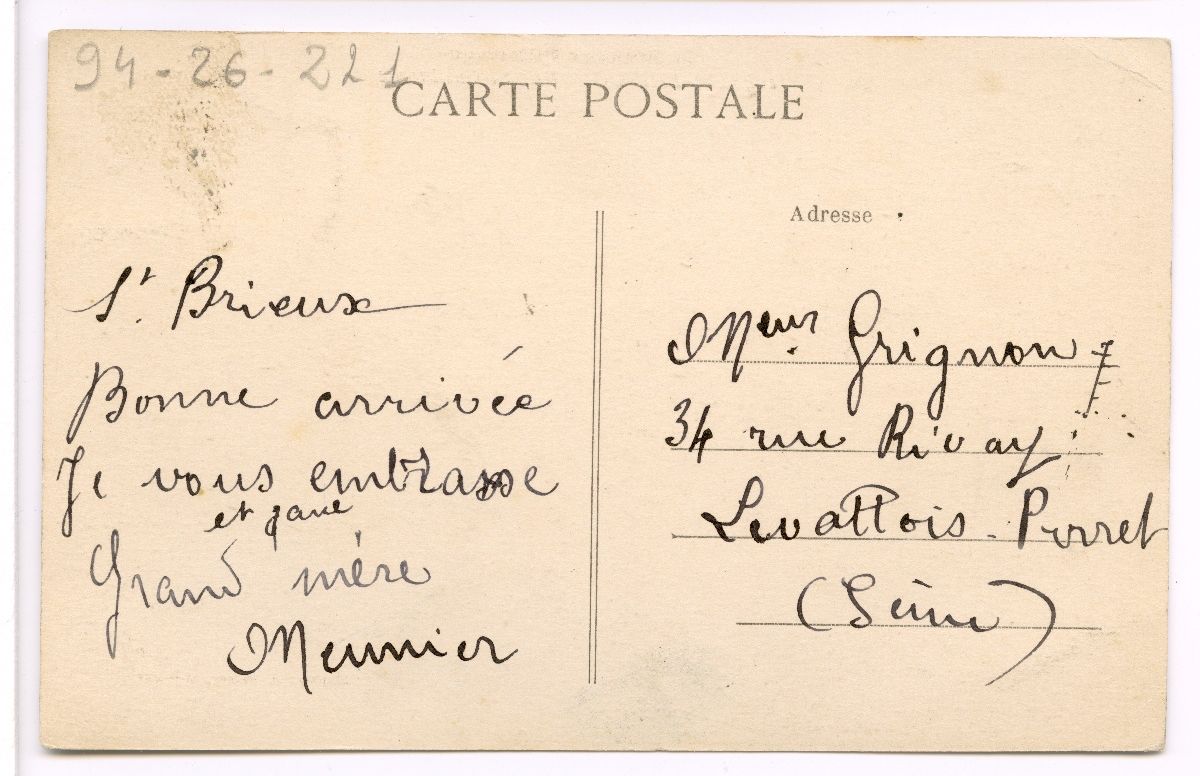 94-26-221
CARTE POSTALE
Adresse
St. Brieux
Bonne arrivée
Je vous embrasse
et
Grand mère
Meunier
Meur Grignon
34 rue Rivay
Levallois-Perret
(Seine)